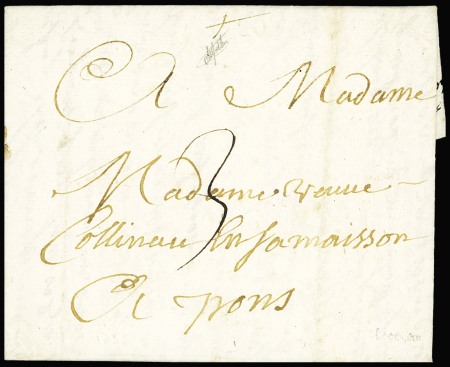 A Madame
Madame veuue
Collineau En Samaisson
A pons
3